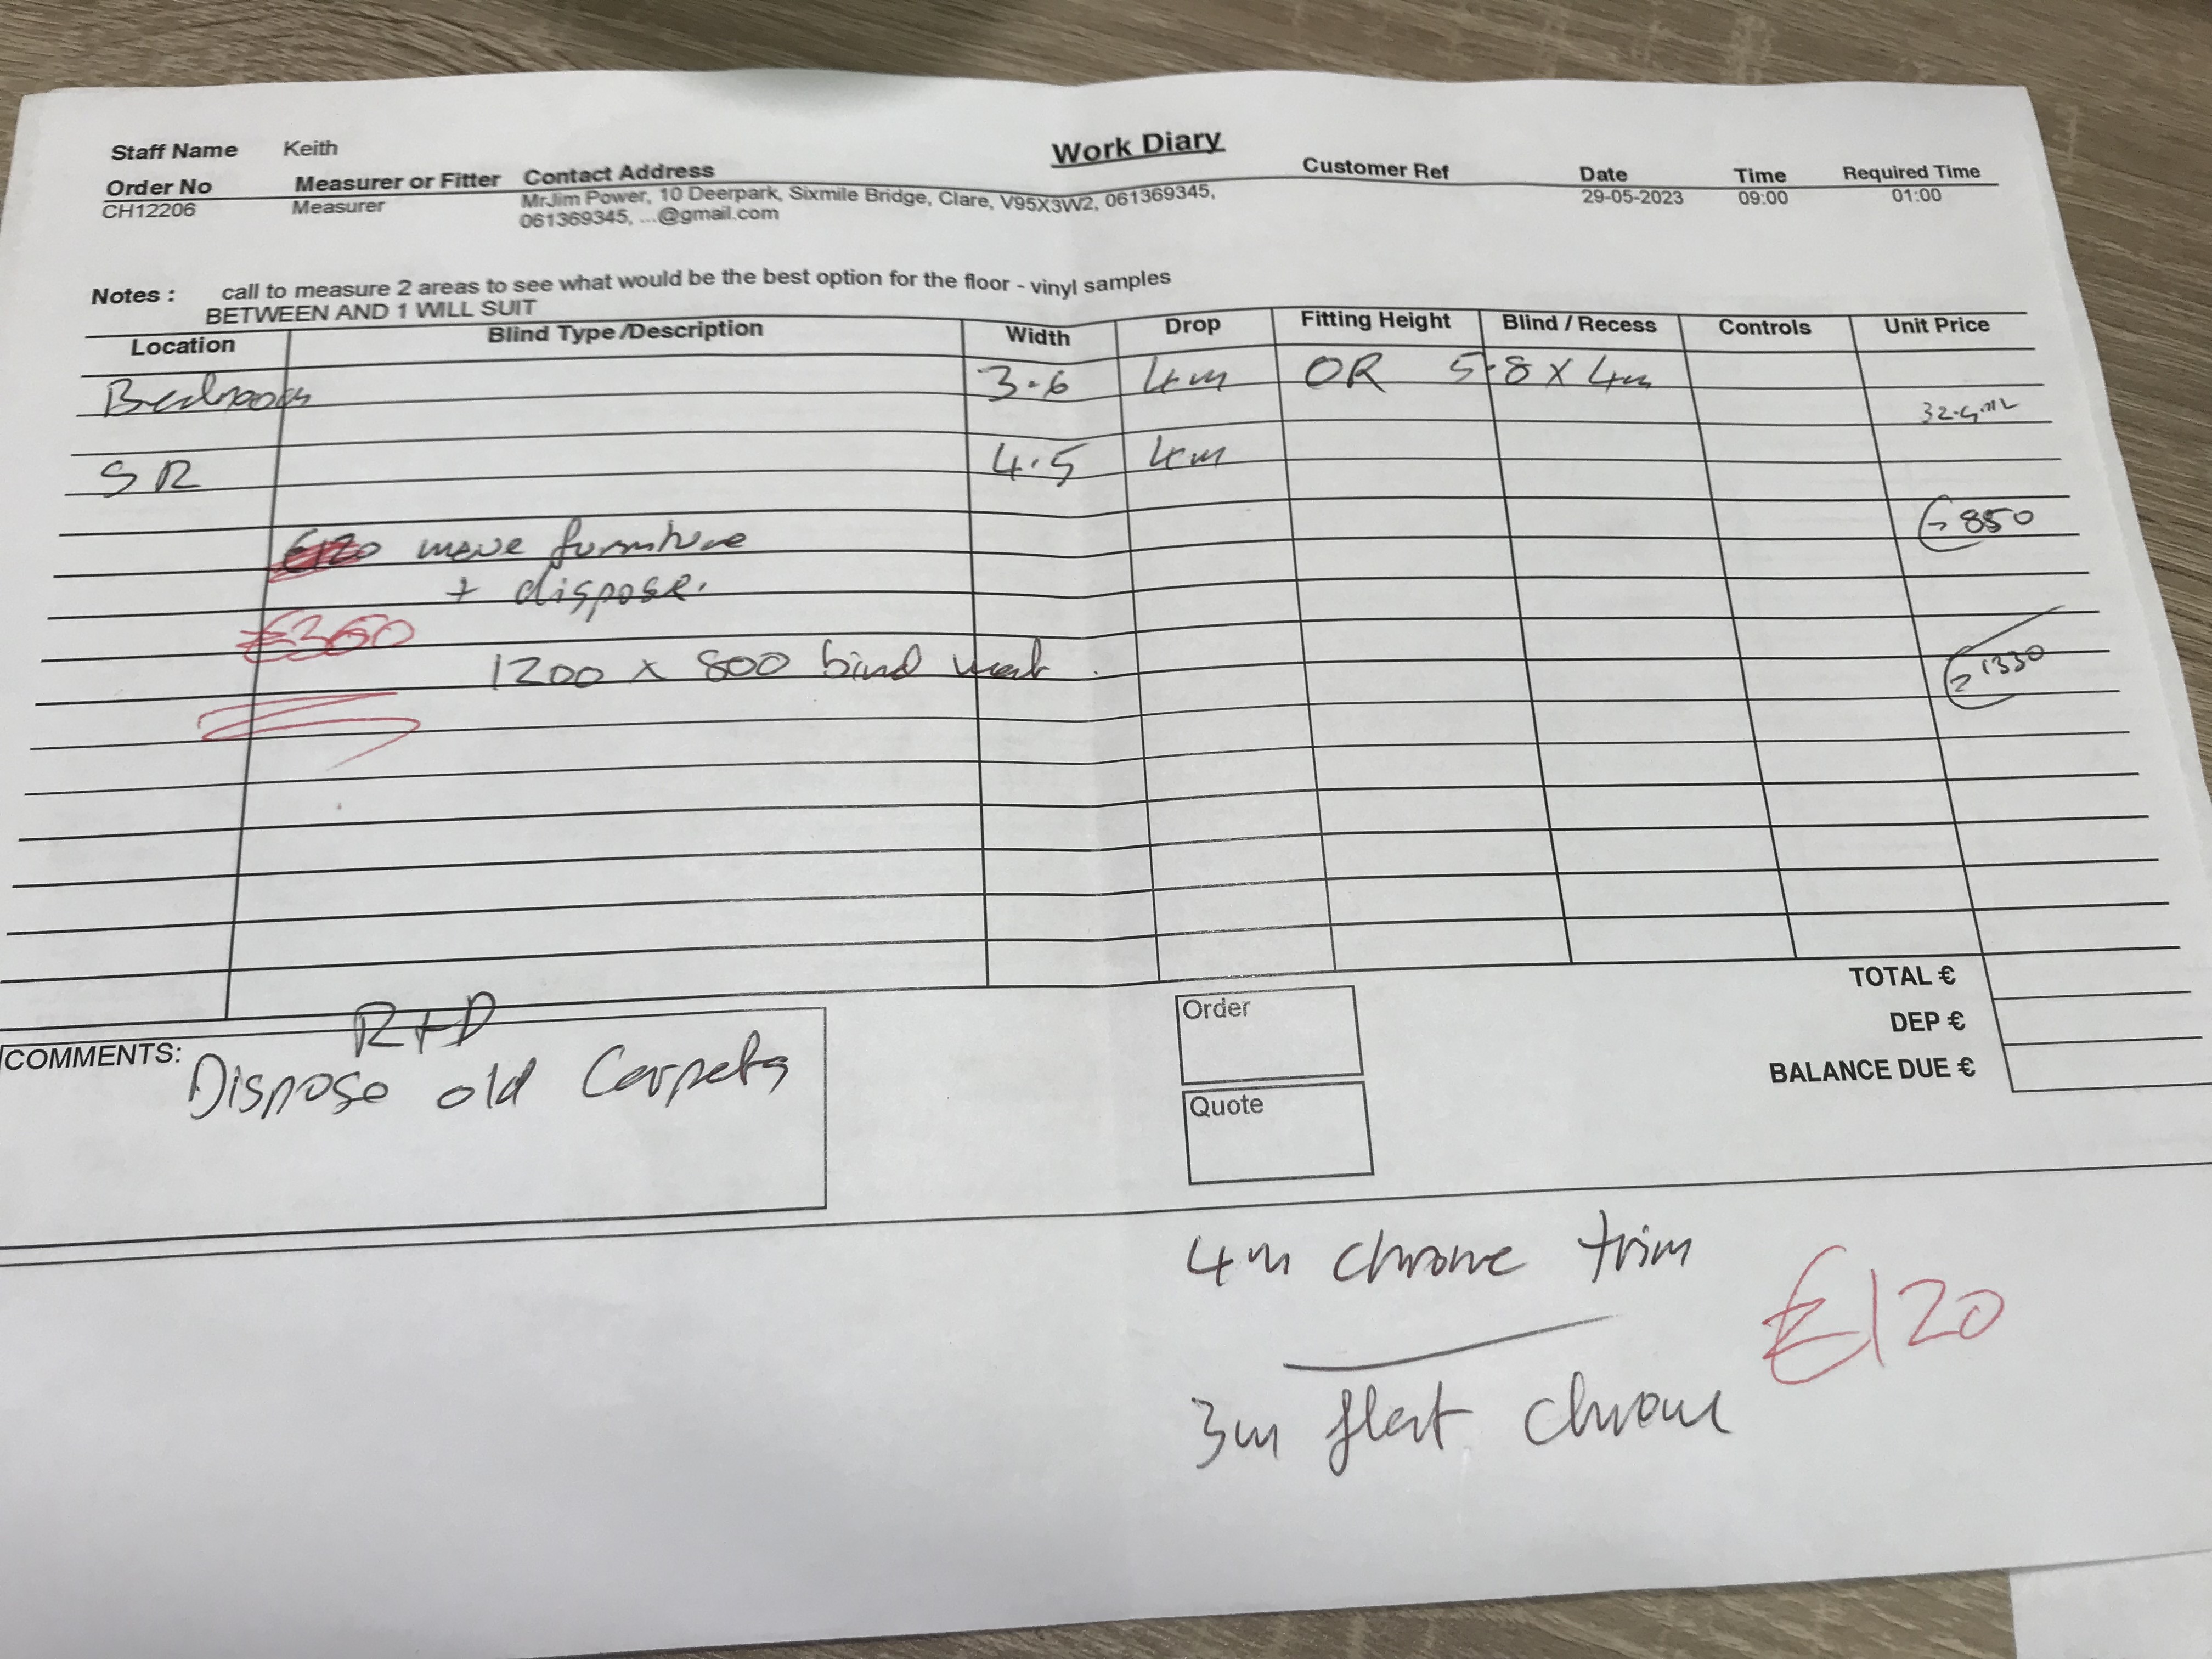 Work Diary
Staff Name Keith
Order No Measurer or Fitter Contact Address Customer Ref Date Time Required Time
CH12206 Measurer MrJim Power, 10 Deerpark, Sixmile Bridge, Clare, V95X3W2, 061369345, 29-05-2023 09:00 01:00
061369345, ...@gmail.com
Notes : call to measure 2 areas to see what would be the best option for the floor - vinyl samples
BETWEEN AND 1 WILL SUIT
Location Blind Type /Description Width Drop Fitting Height Blind / Recess Controls Unit Price
Bedroom 3.6 4m OR 5.8 x 4m
SR 4.5 4m
€120 move furniture €850
+ dispose.
€360
1200 x 800 bind mat. 1330
TOTAL €
DEP €
BALANCE DUE €
R+D
COMMENTS: Dispose old Carpets
Order
Quote
4m chrome trim
€120
3m flat chrome